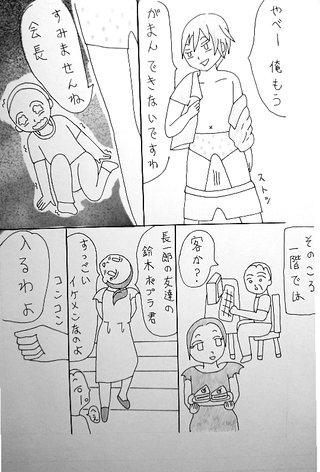 やべー俺もう
がまんできないですわ
ストン
すみませんね
会長
そのころ
一階では
客か?
長一郎の友達の
鈴木
君
すっごい
イケメンなのよ
へぇー
コンコン
入るわよ